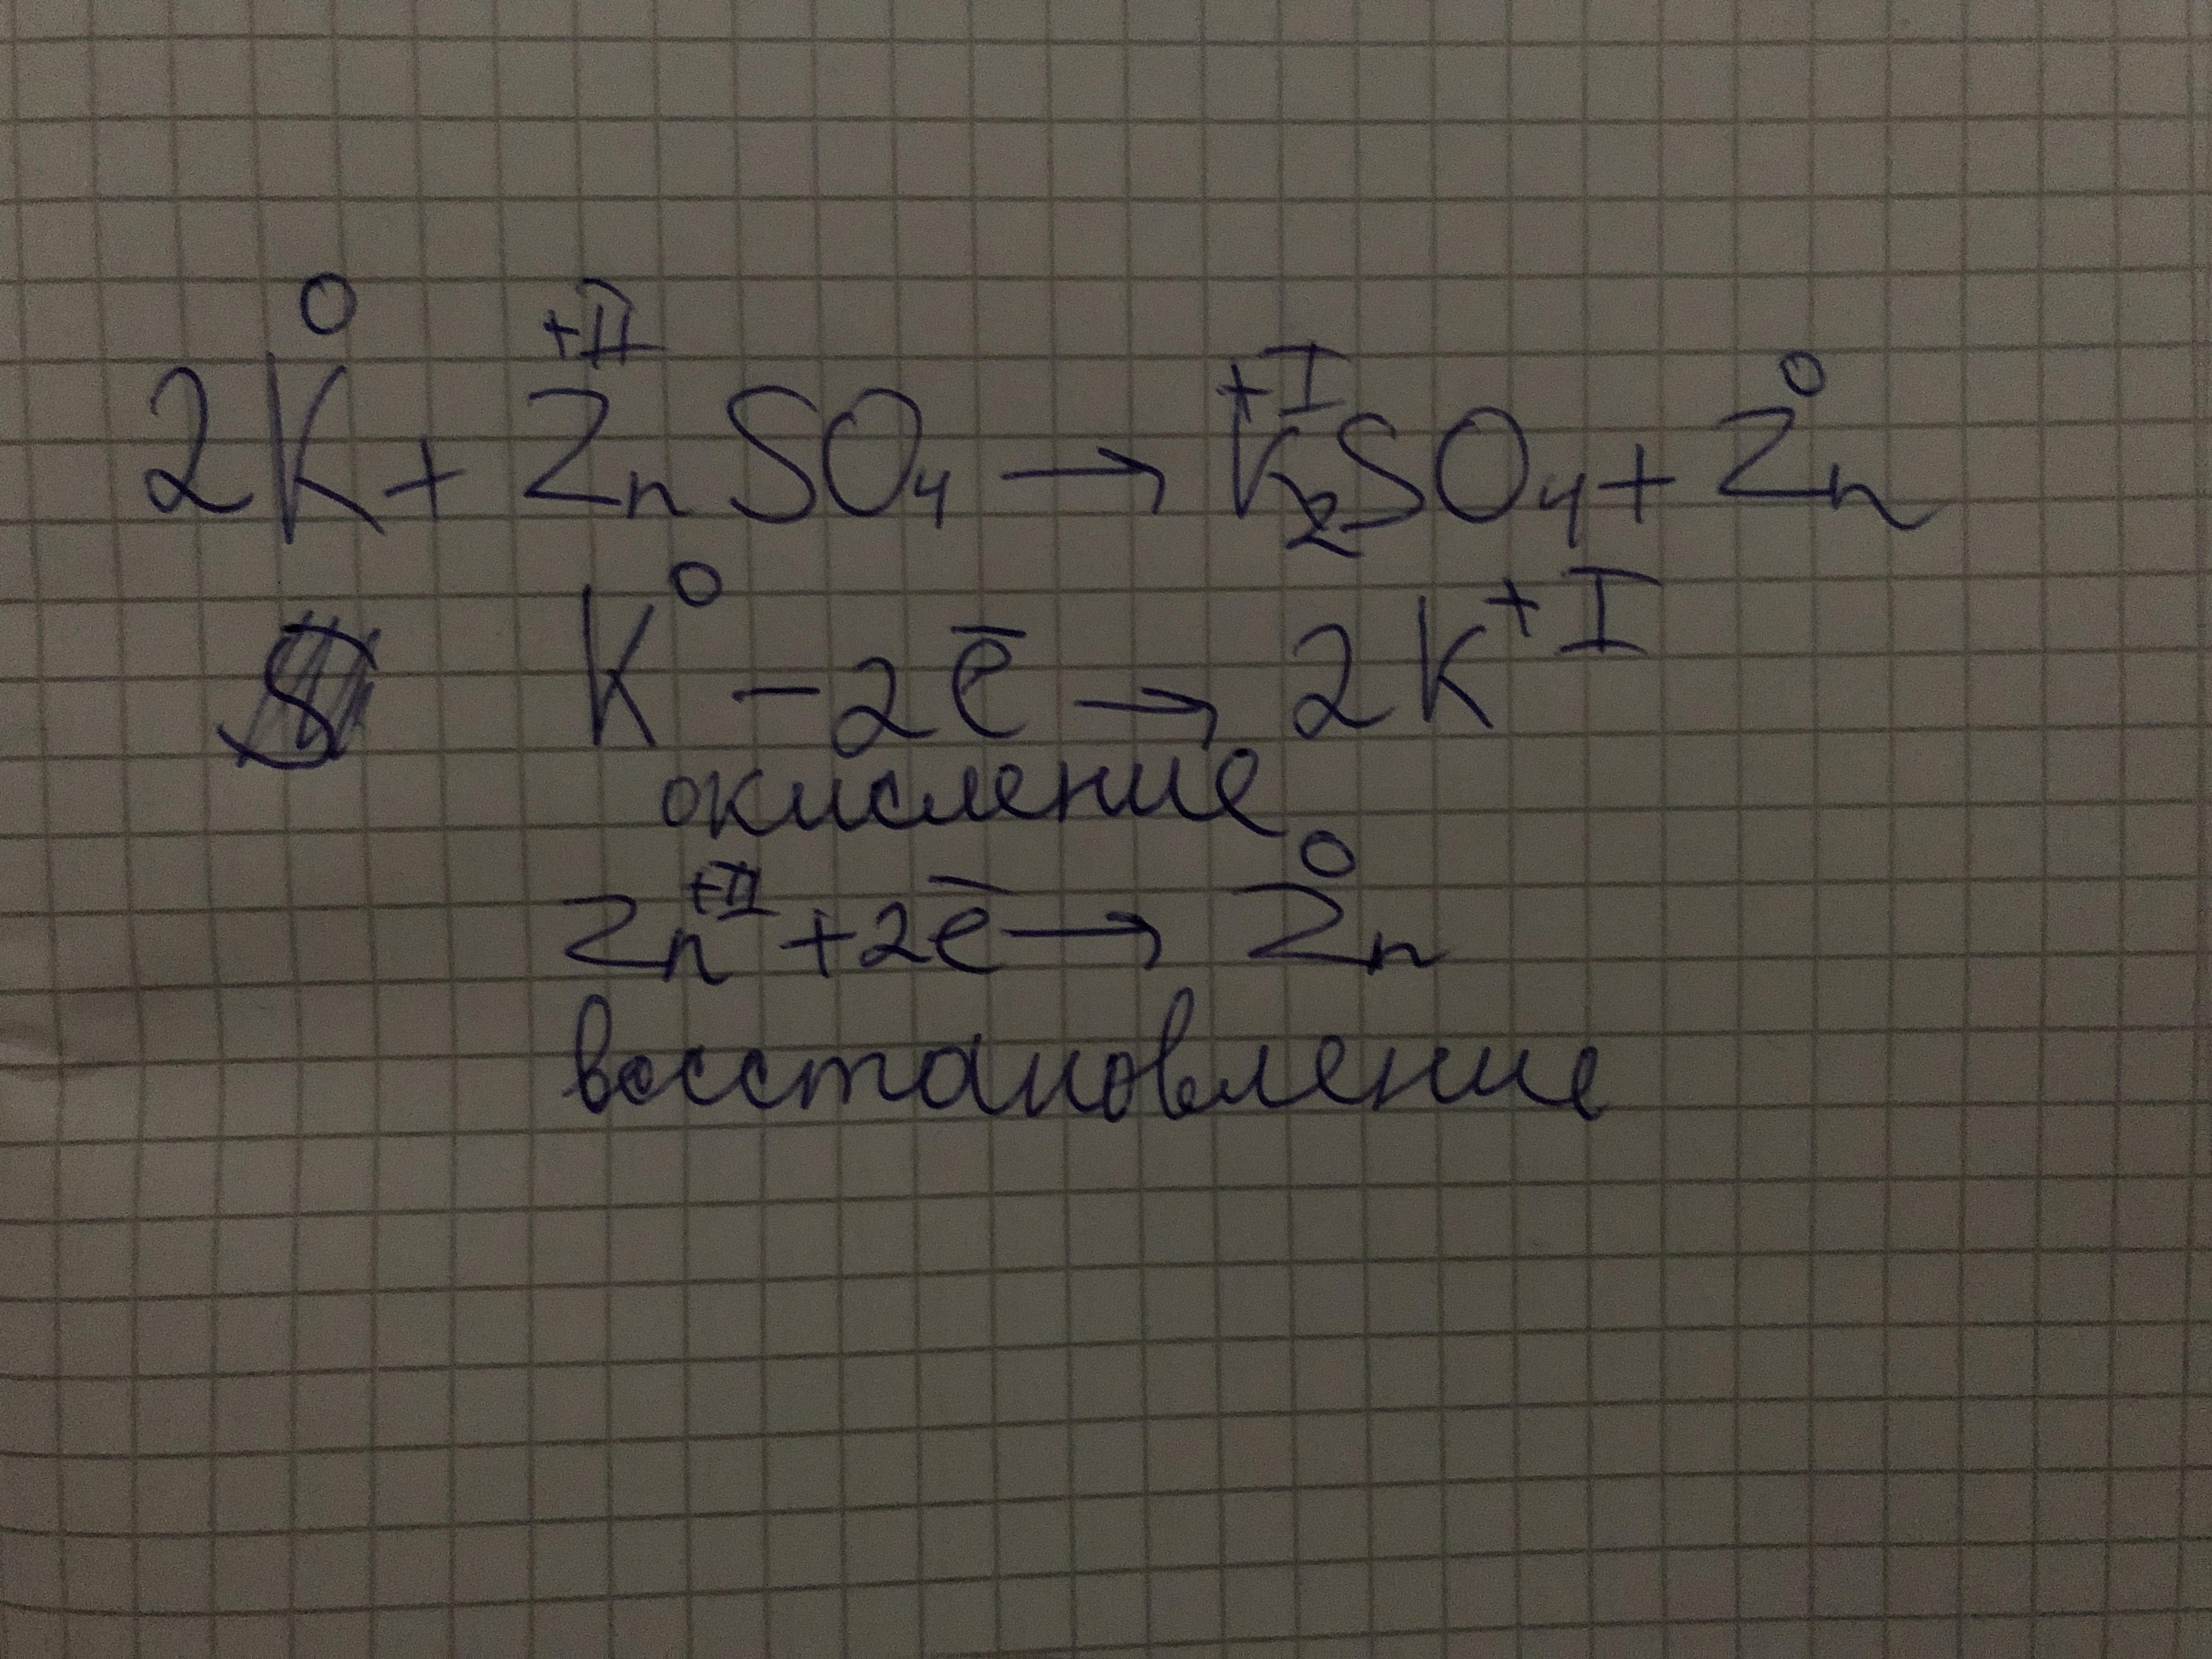 2K⁰ + Zn⁺ᴵᴵSO₄ → K₂⁺ᴵSO₄ + Zn⁰
K⁰ - 2e̅ → 2K⁺ᴵ
окисление
Zn⁺ᴵᴵ + 2e̅ → Zn⁰
восстановление